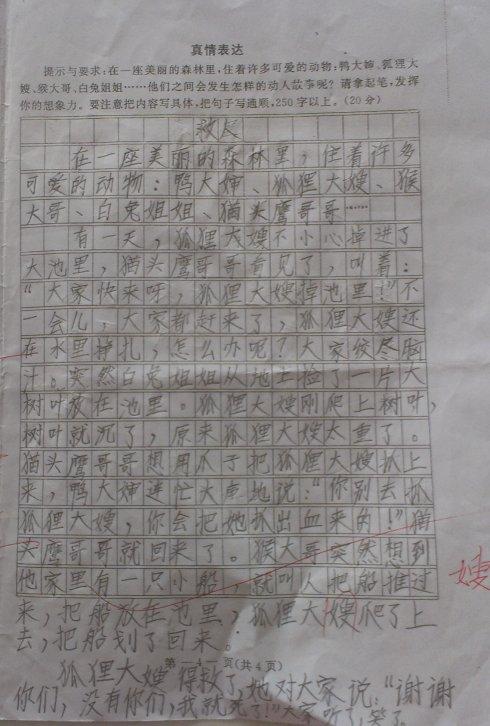 真情表达
提示与要求:在一座美丽的森林里,住着许多可爱的动物:鸭大婶、狐狸大
嫂、猴大哥、白兔姐姐……他们之间会发生怎样的动人故事呢?请拿起笔,发挥
你的想象力。要注意把内容写具体,把句子写通顺,250字以上。(20分)
救人
在一座美丽的森林里,住着许多
可爱的动物:鸭大婶、狐狸大嫂、猴
大哥、白兔姐姐、猫头鹰哥哥……
有一天,狐狸大嫂不小心掉进了
大池里,猫头鹰哥哥看见了,叫着:
“大家快来呀,狐狸大嫂掉池里!”不
一会儿,大家都赶来了,狐狸大嫂还
在水里挣扎,怎么办呢?大家绞尽脑
汁。突然白兔姐姐从地上捡了一片大
树叶放在池里。狐狸大嫂刚爬上树叶,
树叶就沉了,原来狐狸大嫂太重了。
猫头鹰哥哥想用爪子把狐狸大嫂抓上
来,鸭大婶连忙大声地说:“你别去抓
狐狸大嫂,你会把她抓出血来的!”猫
头鹰哥哥就回来了。猴大哥突然想到
他家里有一只小船,就叫人把船推过
嫂
来,把船放在池里,狐狸大嫂爬了上
去,把船划了回来。
第 页(共4页)
狐狸大嫂得救了,她对大家说:“谢谢
你们,没有你们,我就死了!”大家听了,笑了